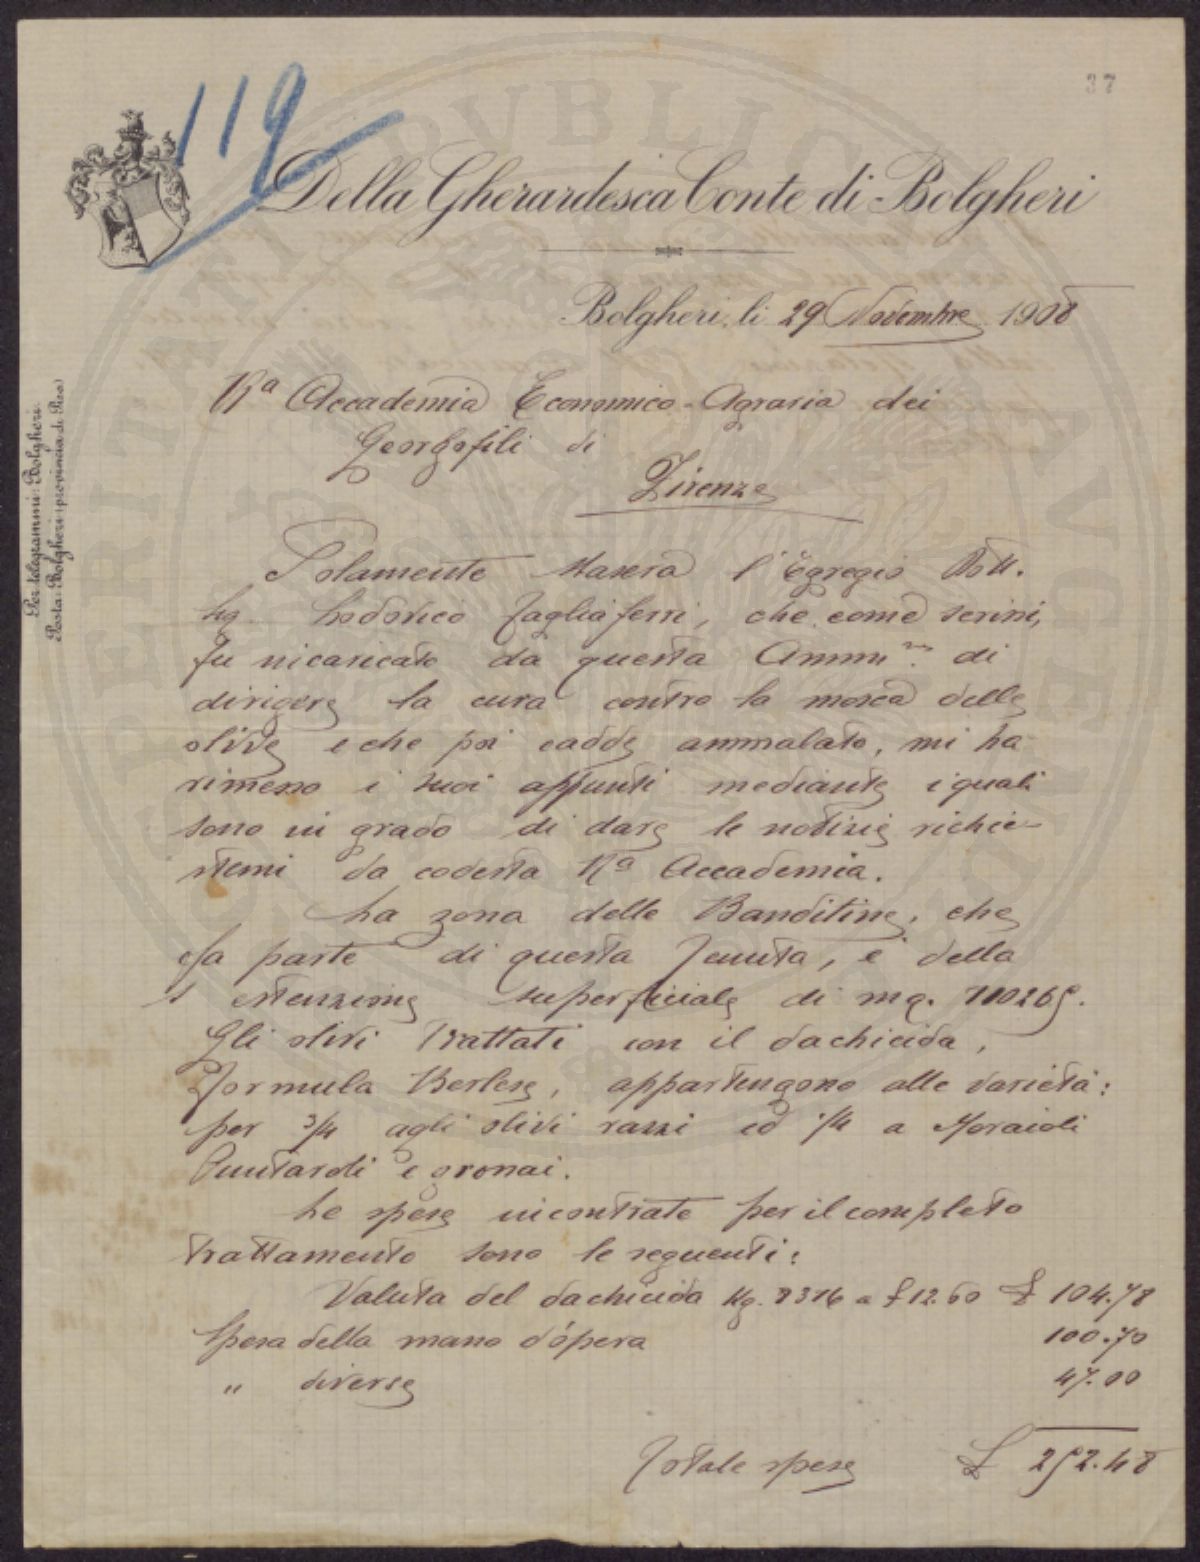 37
119
Della Gherardesca Conte di Bolgheri
Bolgheri, li 29 Novembre 1908
Per telegrammi: Bolgheri.
Posta: Bolgheri (provincia di Pisa)
Rª Accademia Economico-Agraria dei
Georgofili di
Firenze
Solamente stasera l'Egregio Dott.
Sig. Lodovico Tagliaferri, che come scrissi,
fu incaricato da questa Ammne. di
dirigere la cura contro la mosca delle
olive e che poi cadde ammalato, mi ha
rimesso i suoi appunti mediante i quali
sono in grado di dare le notizie richie-
stemi da codesta Rª Accademia.
La zona delle Banditine, che
fa parte di questa Tenuta, è della
estenzione superficiale di mq. 710265.
Gli olivi trattati con il dachicida,
formula Berlese, appartengono alle varietà:
per 3/4 agli olivi razzi ed 1/4 a Moraioli
Puntaroli e gronai.
Le spese incontrate per il completo
trattamento sono le seguenti:
Valuta del dachicida Kg. 8316 a £ 12.60 £ 104.78
Spesa della mano d'opera 100.70
" diverse 47.00
Totale spese £ 252.48